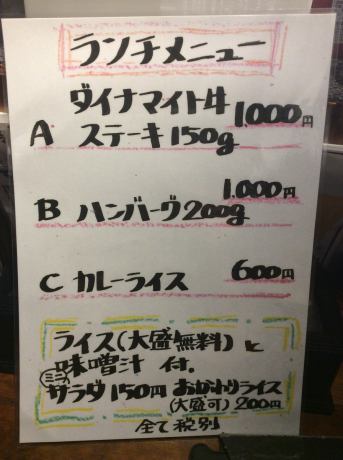 ランチメニュー
ダイナマイト牛
A ステーキ150g 1,000円
1,000円
B ハンバーグ200g
C カレーライス 600円
ライス(大盛無料)と
味噌汁 付。
ミニサラダ 150円 おかわりライス
(大盛可) 200円
全て税別